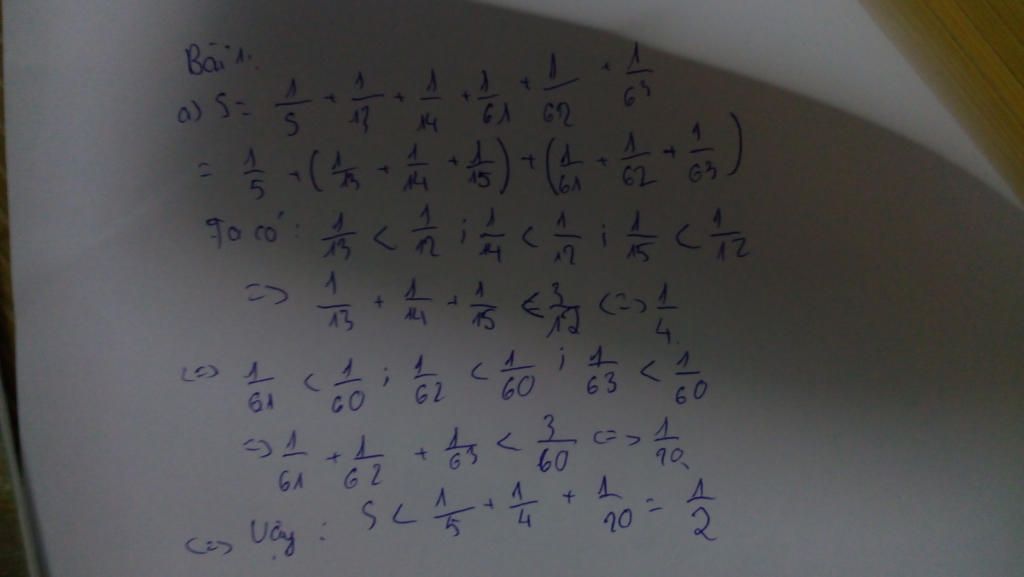 Bài 1:
a) S = 1/5 + 1/13 + 1/14 + 1/61 + 1/62 + 1/63
= 1/5 + (1/13 + 1/14 + 1/15) + (1/61 + 1/62 + 1/63)
Ta có: 1/13 < 1/12 ; 1/14 < 1/12 ; 1/15 < 1/12
=> 1/13 + 1/14 + 1/15 < 3/12 <=> 1/4
<=> 1/61 < 1/60 ; 1/62 < 1/60 ; 1/63 < 1/60
=> 1/61 + 1/62 + 1/63 < 3/60 <=> 1/20
<=> Vậy : S < 1/5 + 1/4 + 1/20 = 1/2